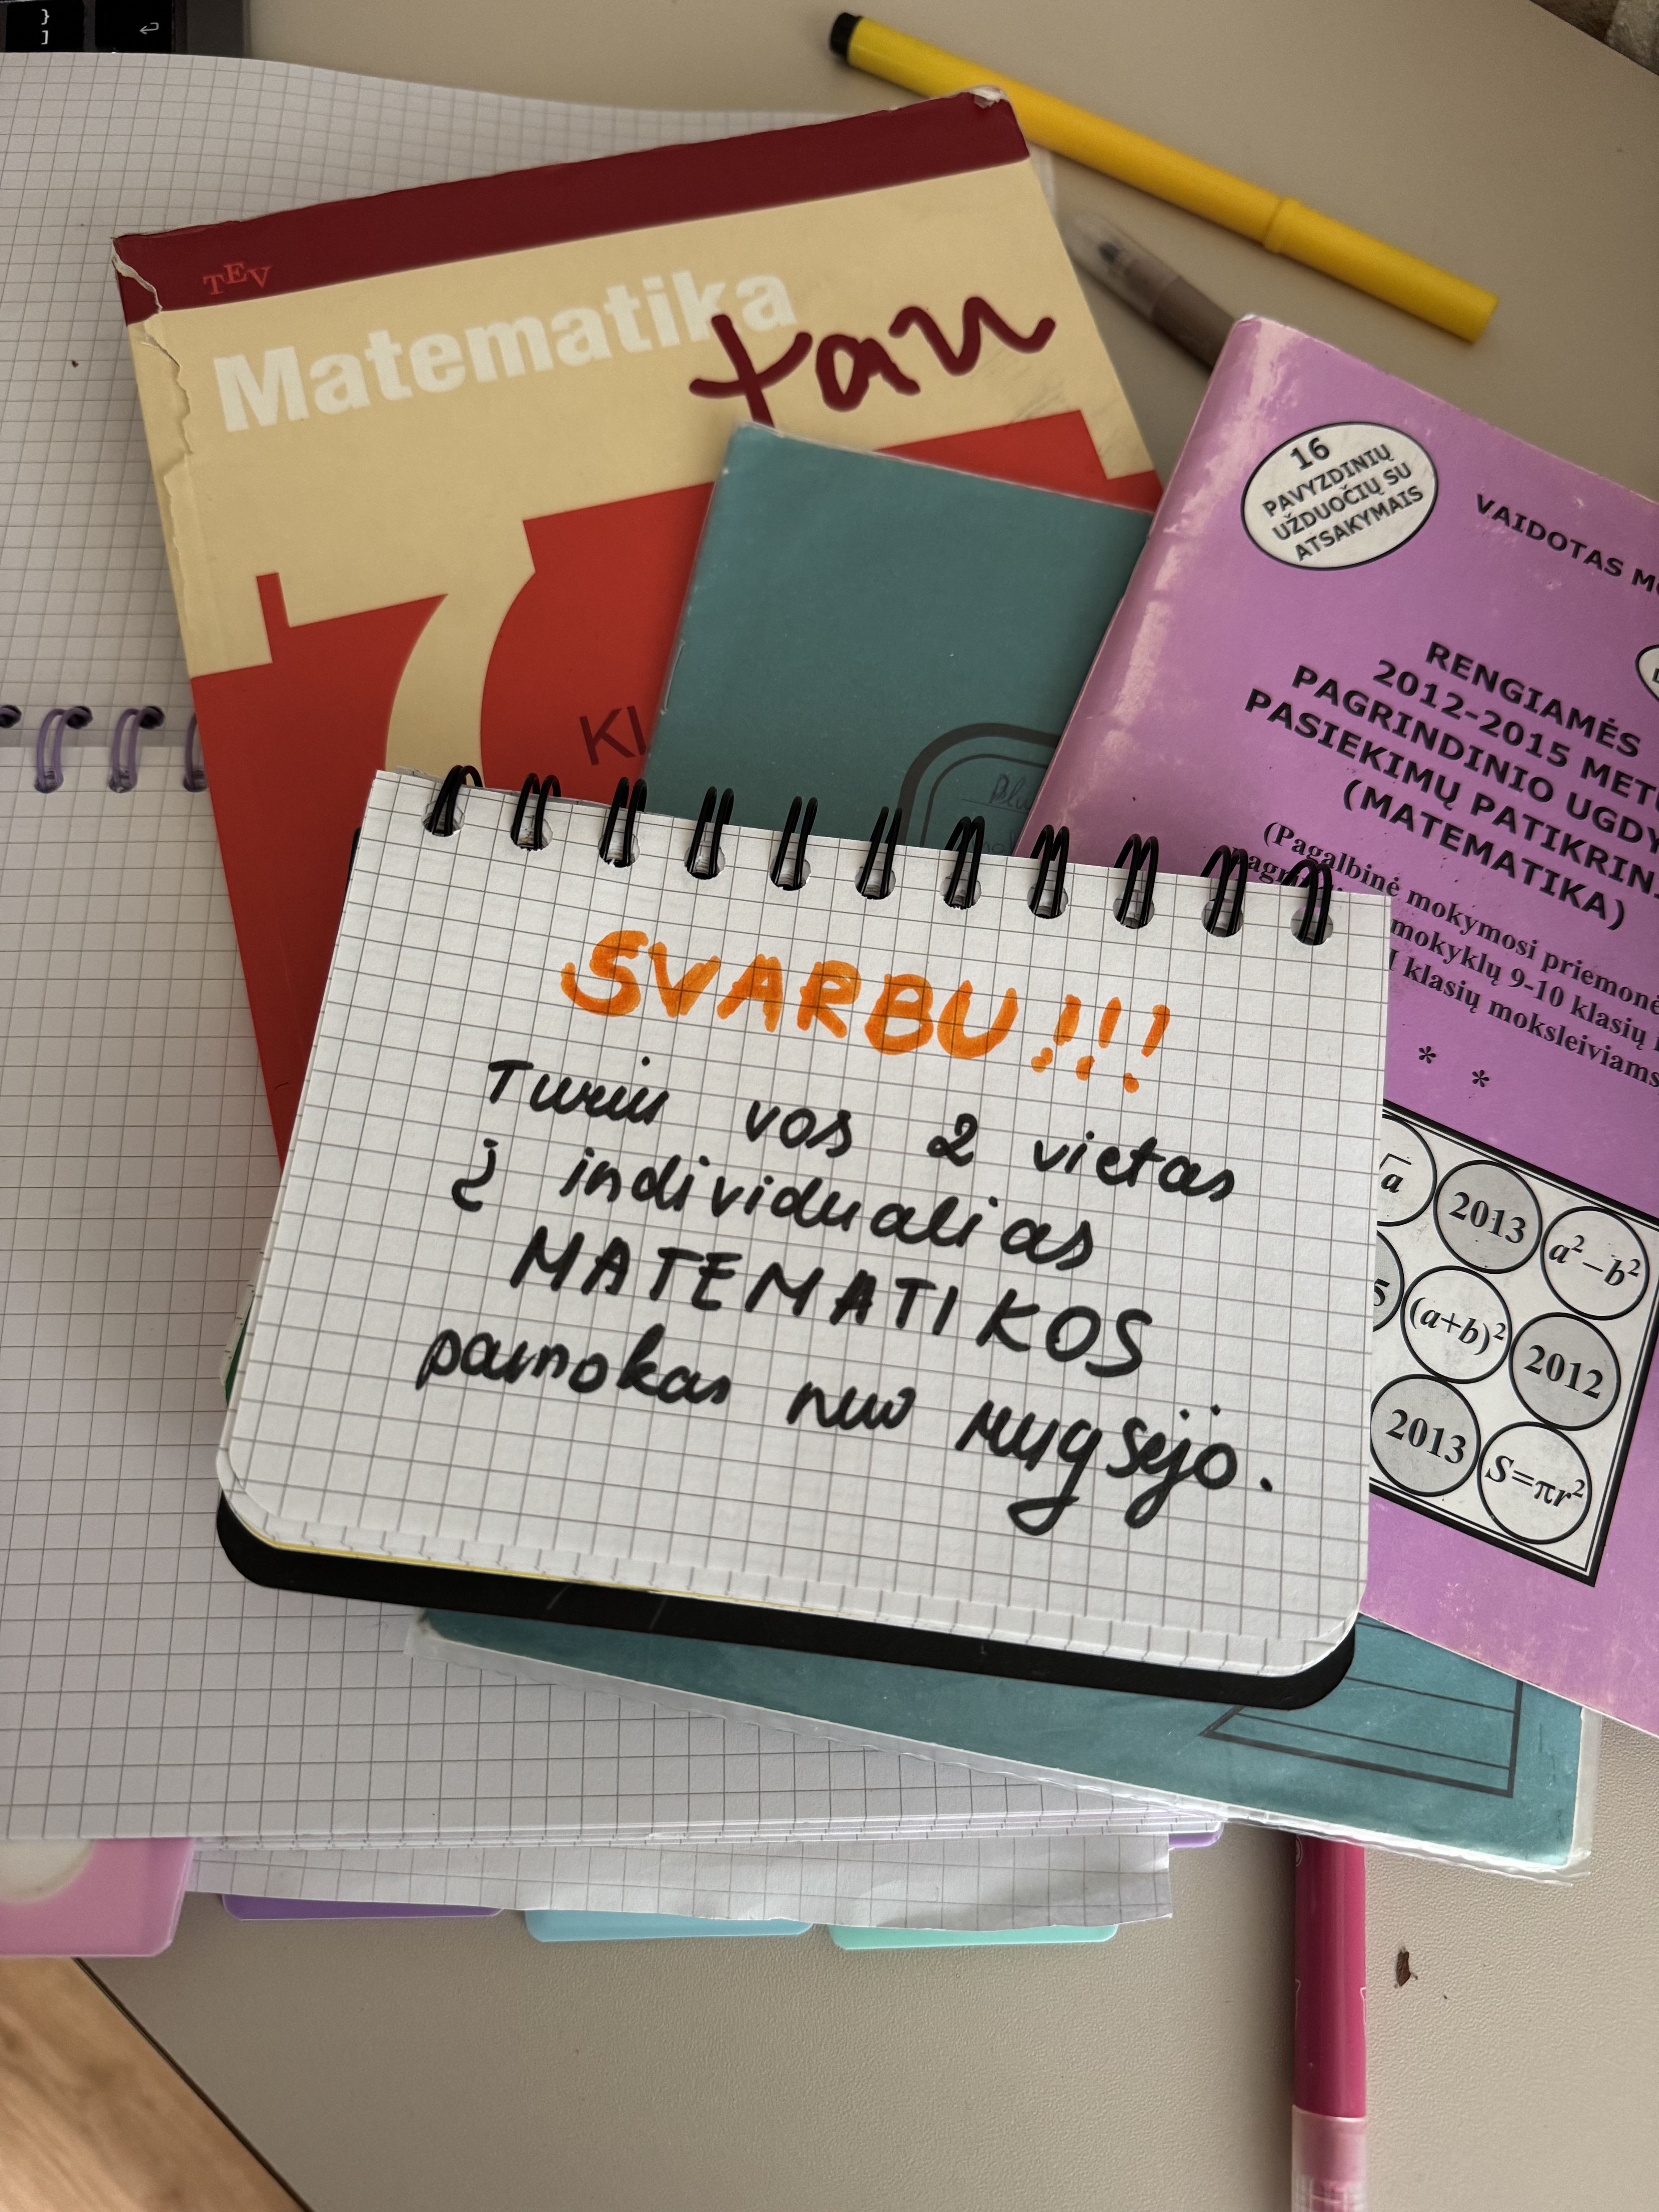 }
]
TEV
Matematika
tau
7
KL
16
PAVYZDINIŲ
UŽDUOČIŲ SU
ATSAKYMAIS
VAIDOTAS
RENGIAMĖS
2012-2015
PAGRINDINIO
PASIEKIMŲ
(MATEMATIKA)
(Pagalbinė mokymosi
mokyklų 9-10 klasių
klasių moksleiviams
* *
√a
2013
a²–b²
5
(a+b)²
2012
2013
S=πr²
SVARBU!!!
Turiu vos 2 vietas
į individualias
MATEMATIKOS
pamokas nuo rugsėjo.